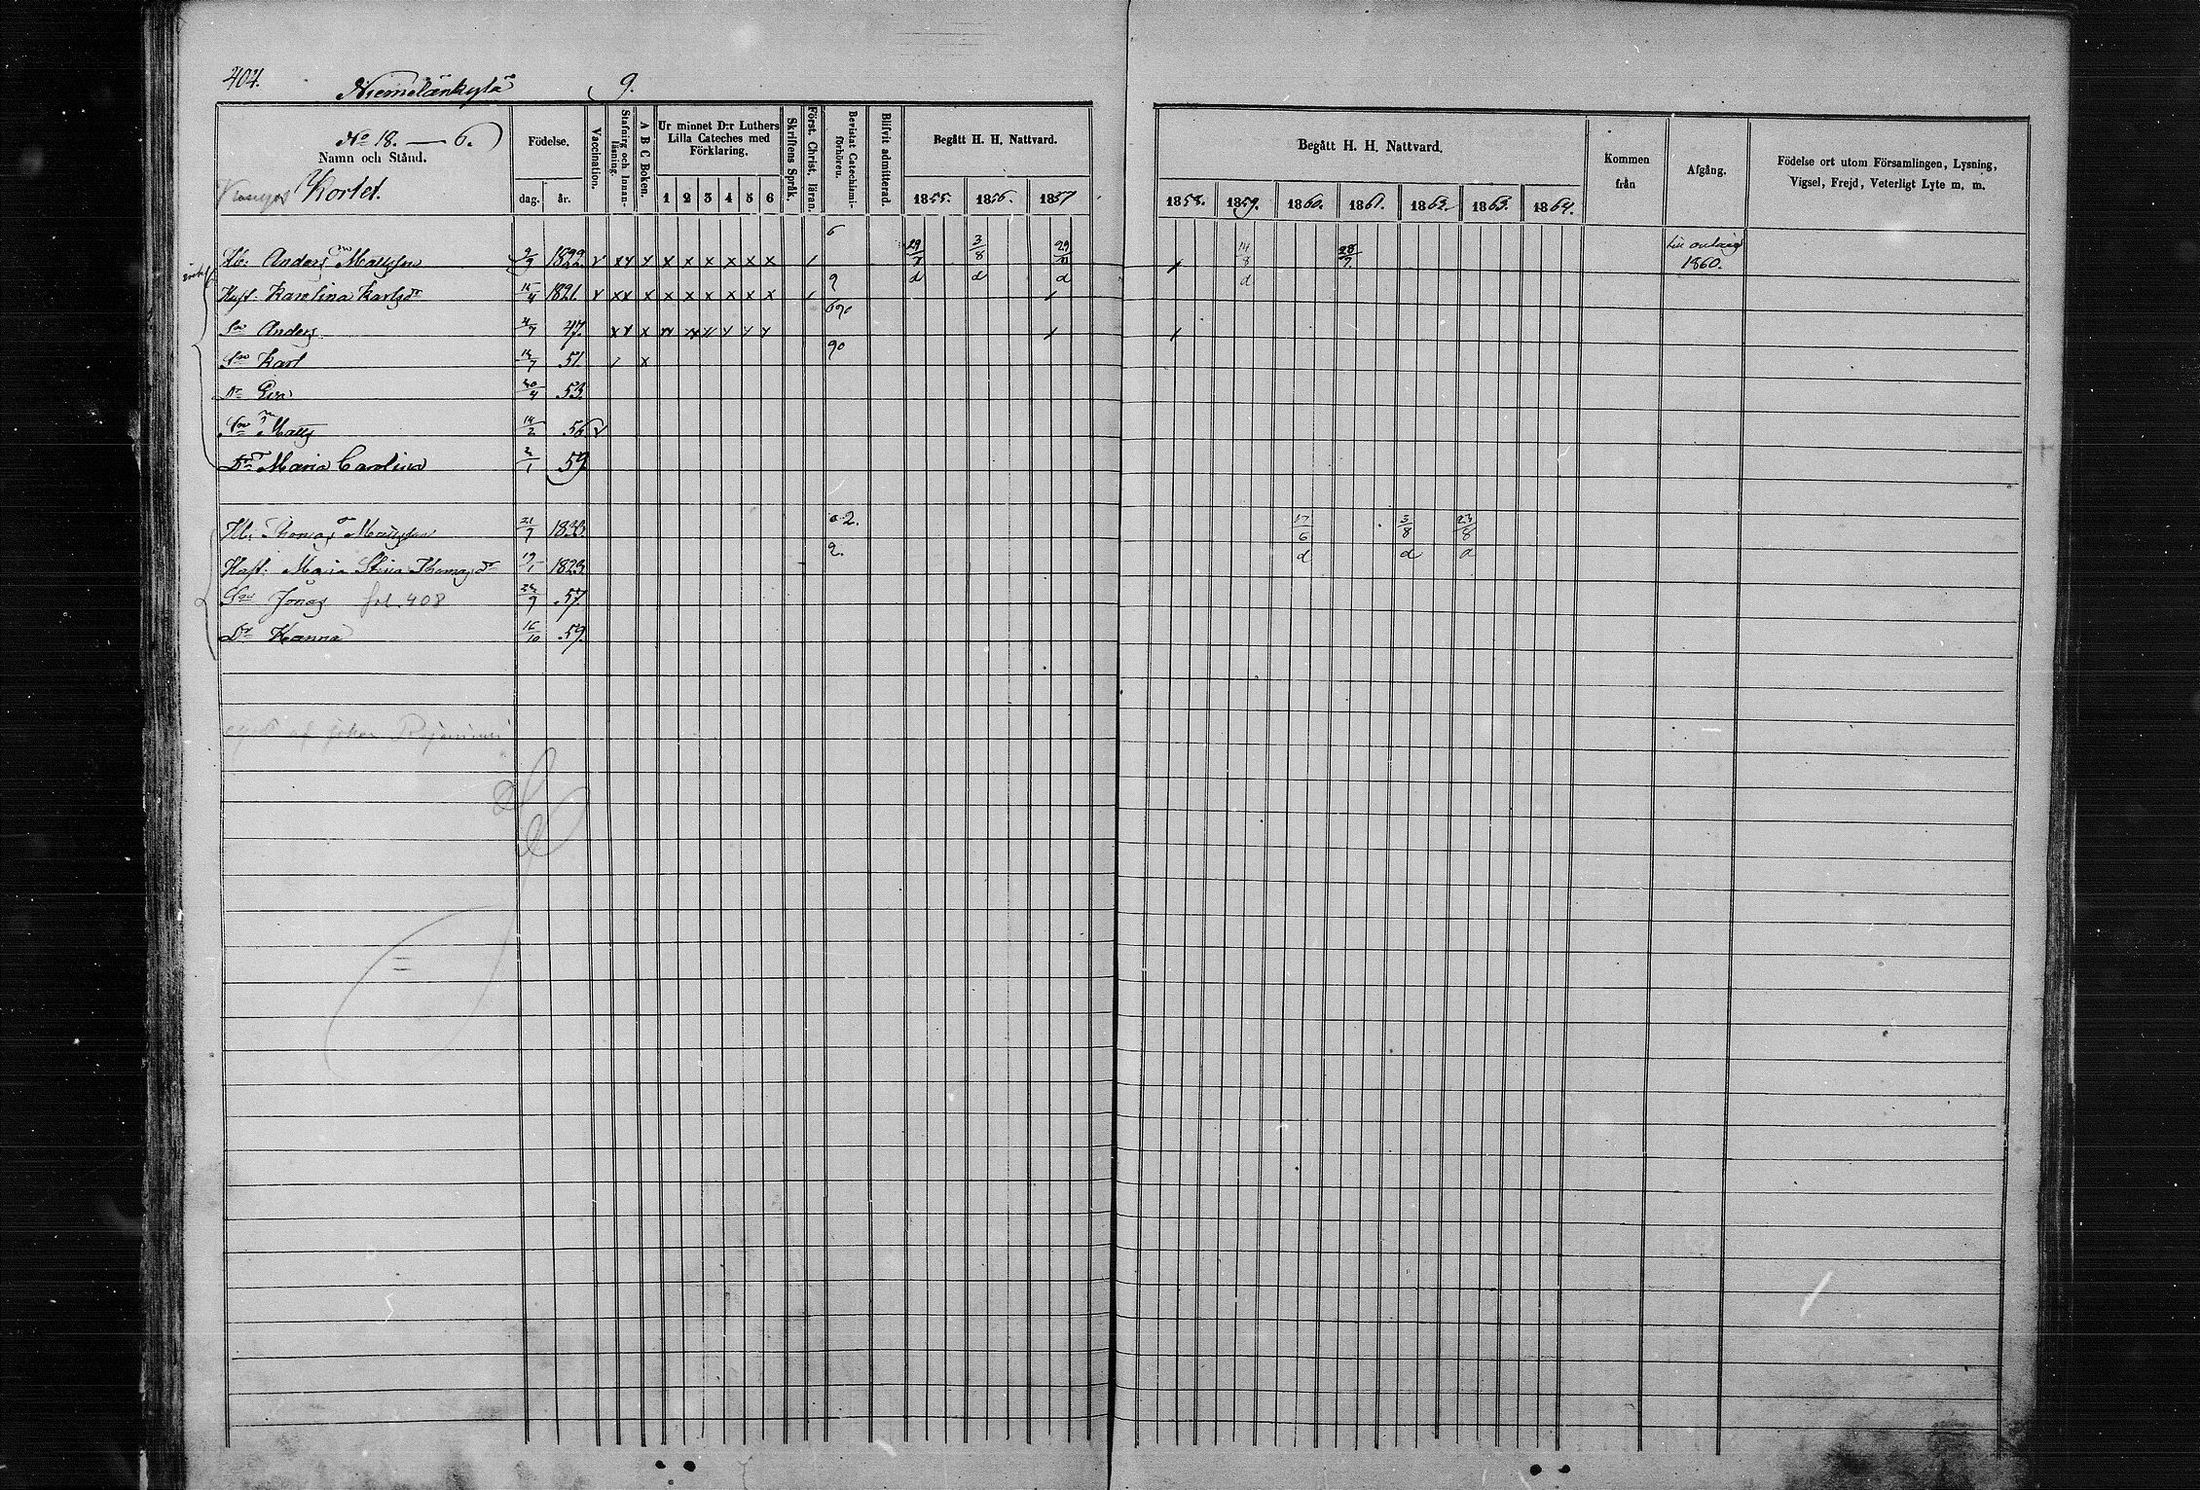 404.
Niemelänkylä 9.
No 18. — 6.
Namn och Stånd.
Kortet.
Födelse.
dag. år.
Vaccination.
Stafning och Innan-
läsning.
A B C Boken.
Ur minnet D:r Luthers
Lilla Cateches med
Förklaring.
1 2 3 4 5 6
Skriftens Språk.
Först. Christ. läran.
Bevistat Catechismi-
förhören.
Blifvit admitterad.
Begått H. H. Nattvard.
1855. 1856. 1857
Begått H. H. Nattvard.
1858. 1859. 1860. 1861. 1862. 1863. 1864.
Kommen
från
Afgång.
Födelse ort utom Församlingen, Lysning,
Vigsel, Frejd, Veterligt Lyte m. m.
Anders Mattsson 9/9 1822 x xx x x x x x x x 6 29/7 3/8 29/11 14/8 28/7 1860.
Hust. Karolina Karlsdr 15/4 1821. x xx x x x x x x x 9 d d d d
Sn Anders 47. xx x
Sn Karl 51. x 90
Dr Eva 53.
Sn Matts 14/2 56
Dr Maria Carolina 2/1 59
Thomas Mattsson 21/9 1833 2. 17/6 3/8 23/8
Hust. Maria Stina Thomasdr 19/1 1823 2. d d d
Sn Jonas fol. 408 57.
Dr Hanna 16/10 59.
af Johan